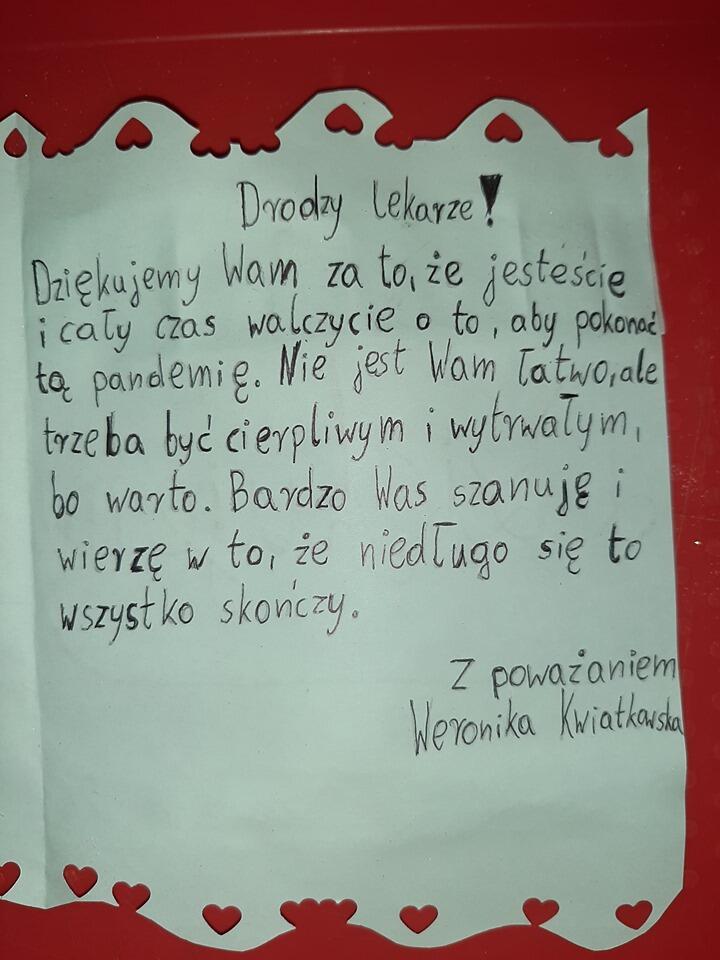 Drodzy lekarze!
Dziękujemy Wam za to, że jesteście
i cały czas walczycie o to, aby pokonać
tą pandemię. Nie jest Wam łatwo, ale
trzeba być cierpliwym i wytrwałym,
bo warto. Bardzo Was szanuję i
wierzę w to, że niedługo się to
wszystko skończy.
Z poważaniem
Weronika Kwiatkowska